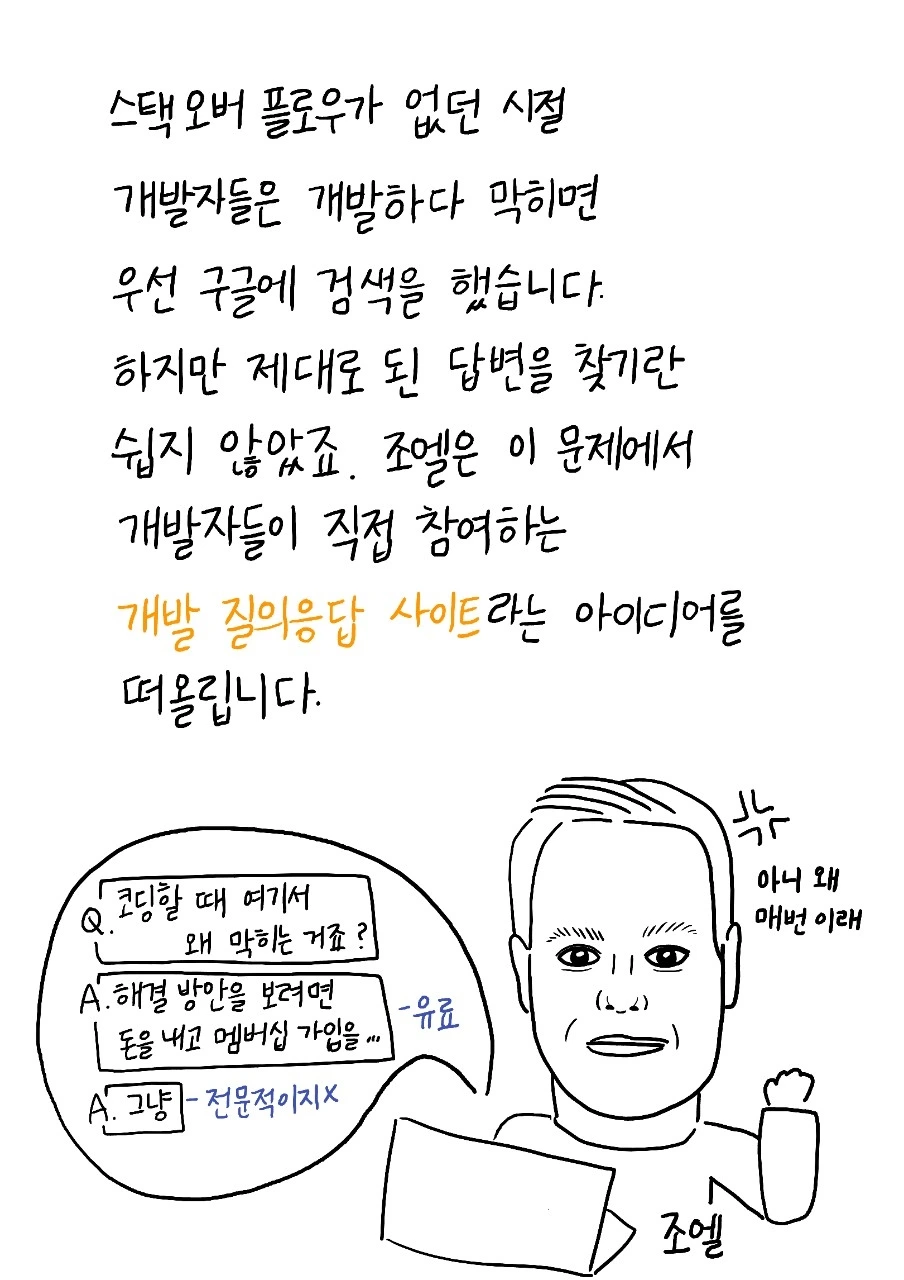 스택오버 플로우가 없던 시절
개발자들은 개발하다 막히면
우선 구글에 검색을 했습니다.
하지만 제대로 된 답변을 찾기란
쉽지 않았죠. 조엘은 이 문제에서
개발자들이 직접 참여하는
개발 질의응답 사이트라는 아이디어를
떠올립니다.
아니 왜
매번 이래
Q. 코딩할 때 여기서
왜 막히는 거죠?
A. 해결 방안을 보려면
돈을 내고 멤버십 가입을...
-유료
A. 그냥 - 전문적이지X
조엘